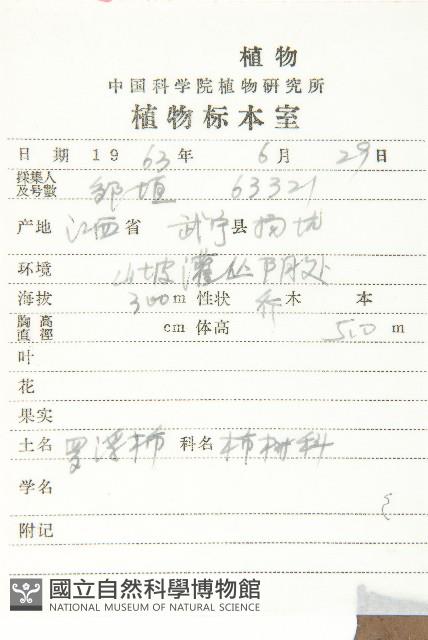 植物
中国科学院植物研究所
植物标本室
日期 1963年 6月 29日
採集人及号數 邹垣 63321
产地 江西省 武宁县
环境 山坡灌丛阴处
海拔 300m 性状 乔木 本
胸高直徑 cm 体高 5.0 m
叶
花
果实
土名 罗浮柿 科名 柿树科
学名
附记
國立自然科學博物館
NATIONAL MUSEUM OF NATURAL SCIENCE